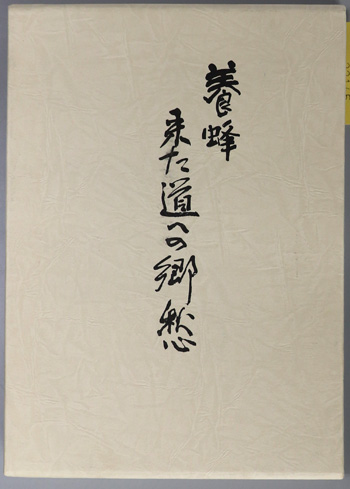 養蜂
来た道への郷愁